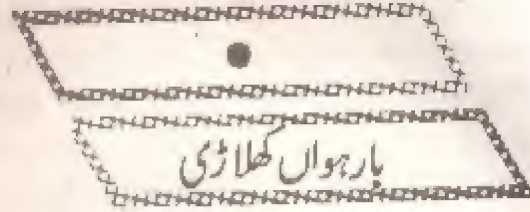 بارہواں کھلاڑی